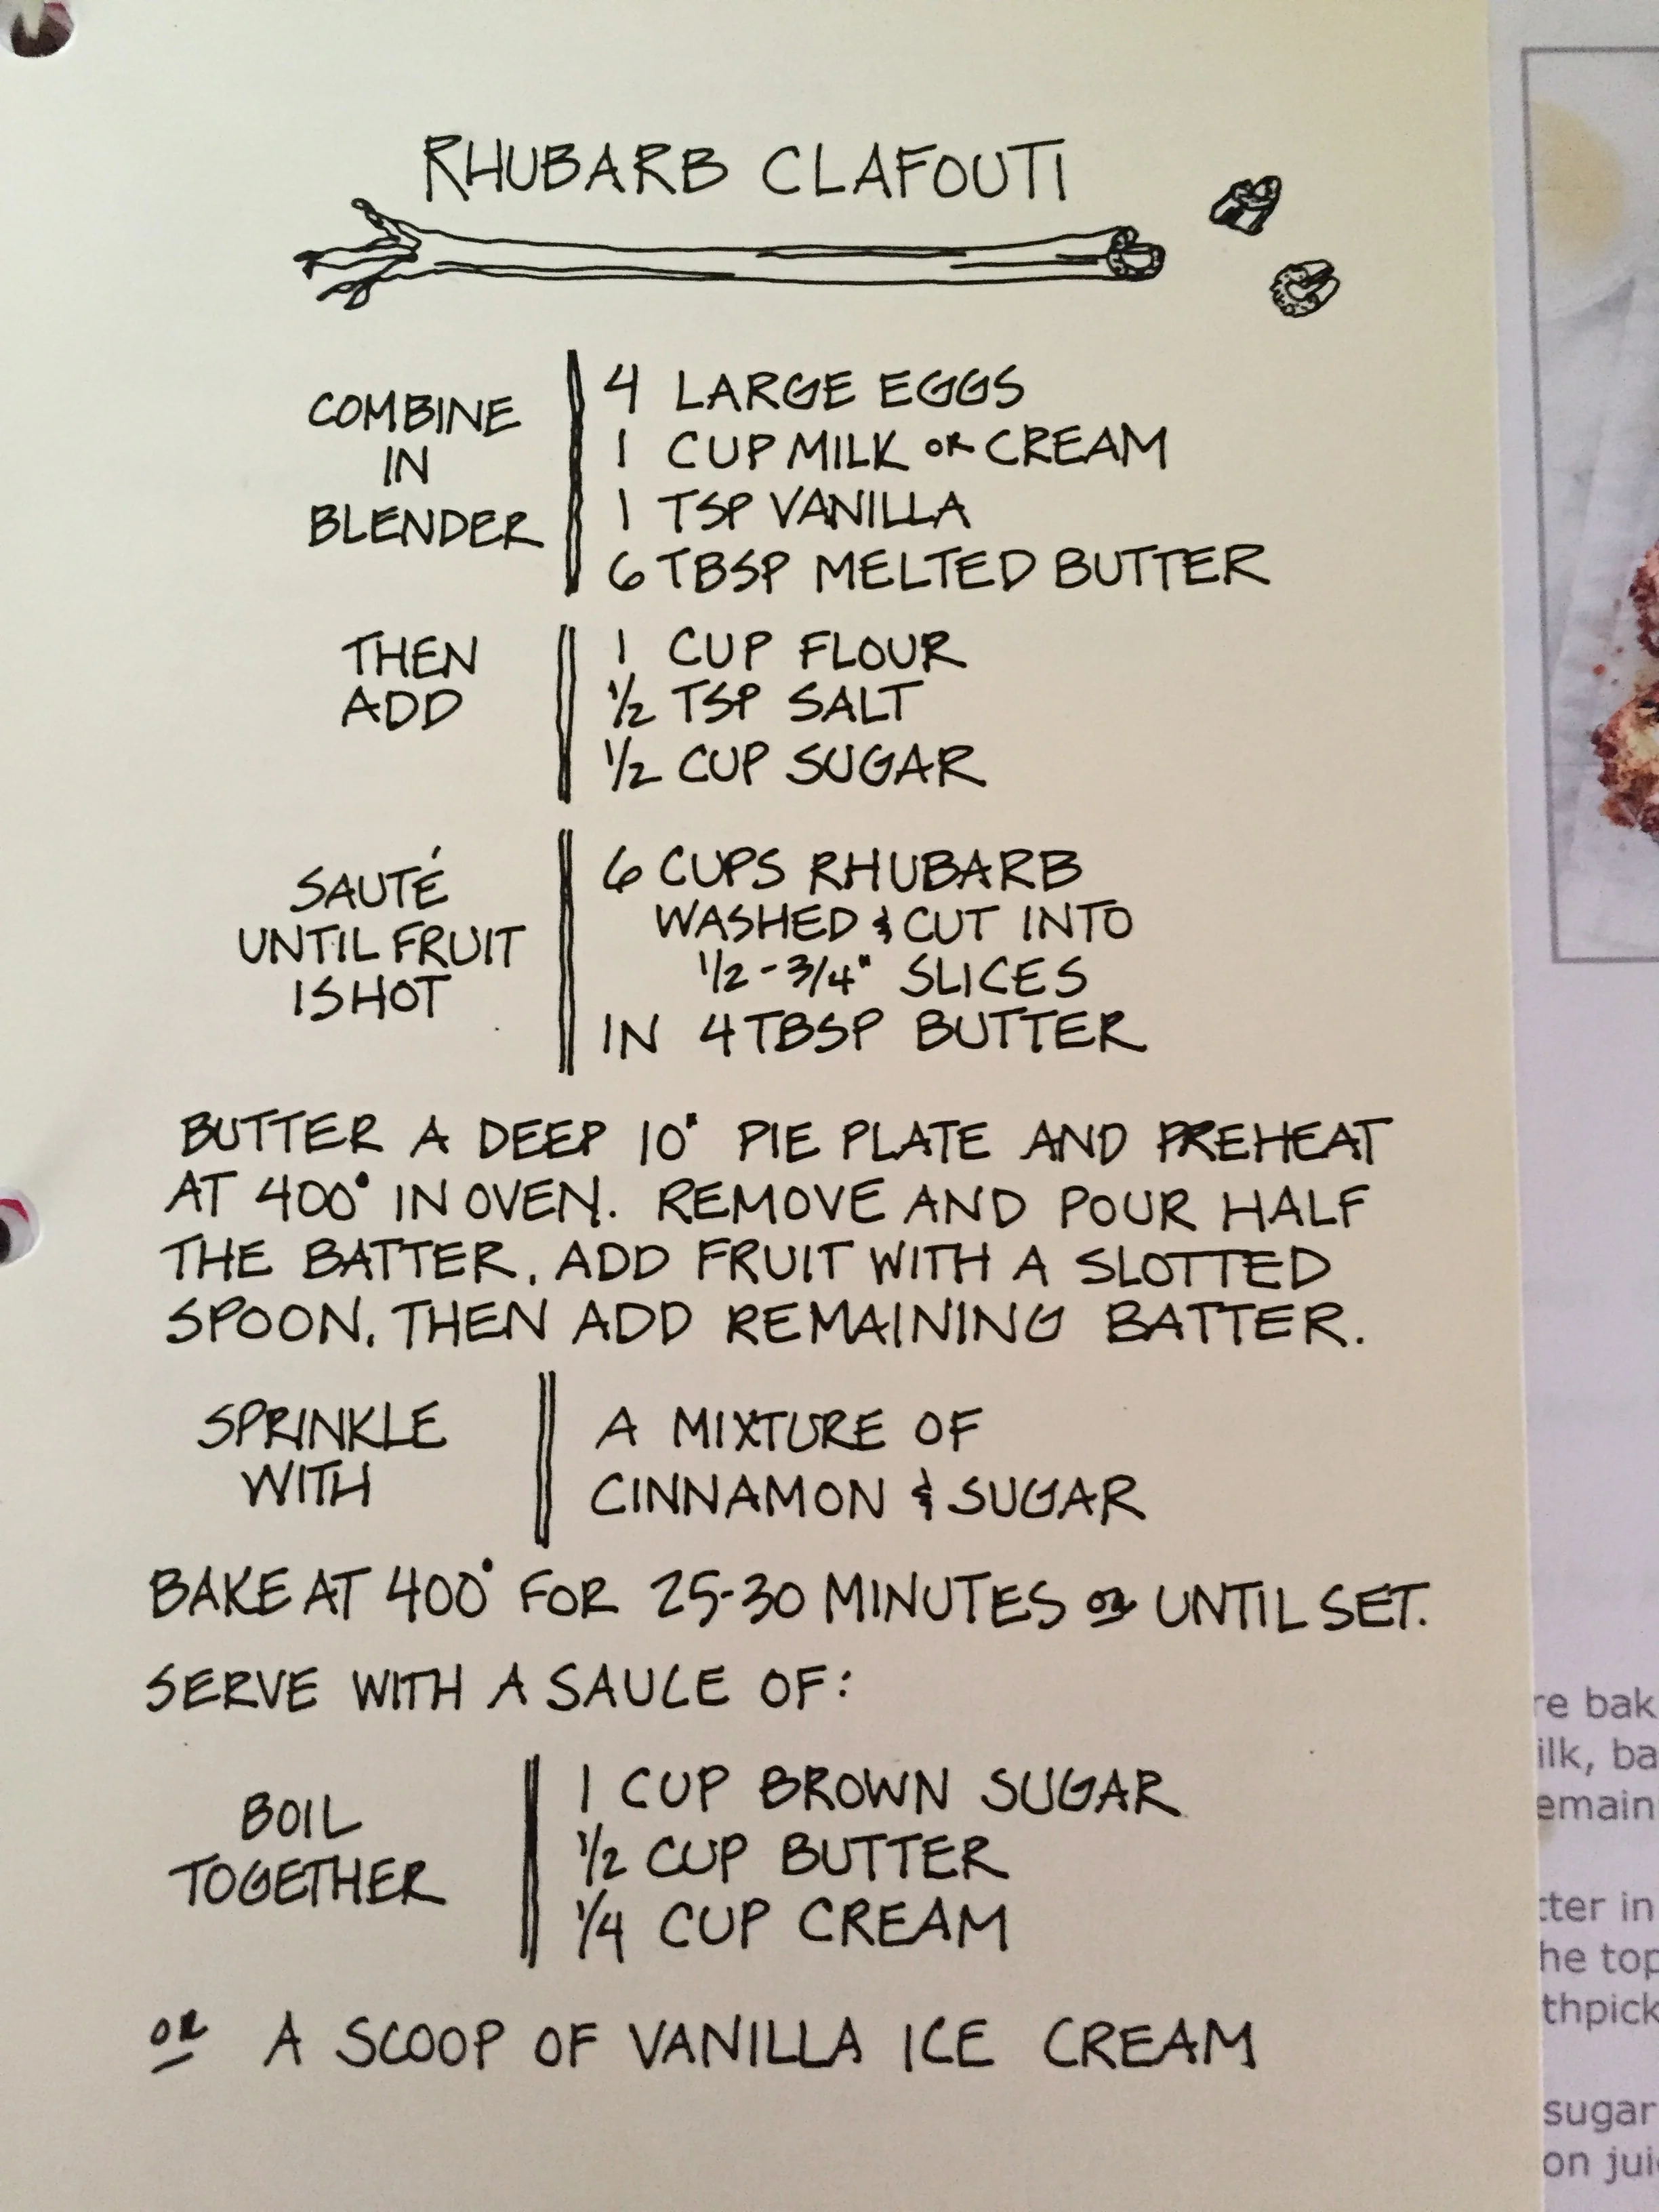 RHUBARB CLAFOUTI
COMBINE
IN
BLENDER
4 LARGE EGGS
1 CUP MILK OR CREAM
1 TSP VANILLA
6 TBSP MELTED BUTTER
THEN
ADD
1 CUP FLOUR
1/2 TSP SALT
1/2 CUP SUGAR
SAUTÉ
UNTIL FRUIT
IS HOT
6 CUPS RHUBARB
WASHED & CUT INTO
1/2 - 3/4" SLICES
IN 4 TBSP BUTTER
BUTTER A DEEP 10" PIE PLATE AND PREHEAT
AT 400° IN OVEN. REMOVE AND POUR HALF
THE BATTER, ADD FRUIT WITH A SLOTTED
SPOON, THEN ADD REMAINING BATTER.
SPRINKLE
WITH
A MIXTURE OF
CINNAMON & SUGAR
BAKE AT 400° FOR 25-30 MINUTES OR UNTIL SET.
SERVE WITH A SAUCE OF:
BOIL
TOGETHER
1 CUP BROWN SUGAR
1/2 CUP BUTTER
1/4 CUP CREAM
OR A SCOOP OF VANILLA ICE CREAM
re bak
ilk, ba
emain
tter in
he top
thpick
sugar
on jui